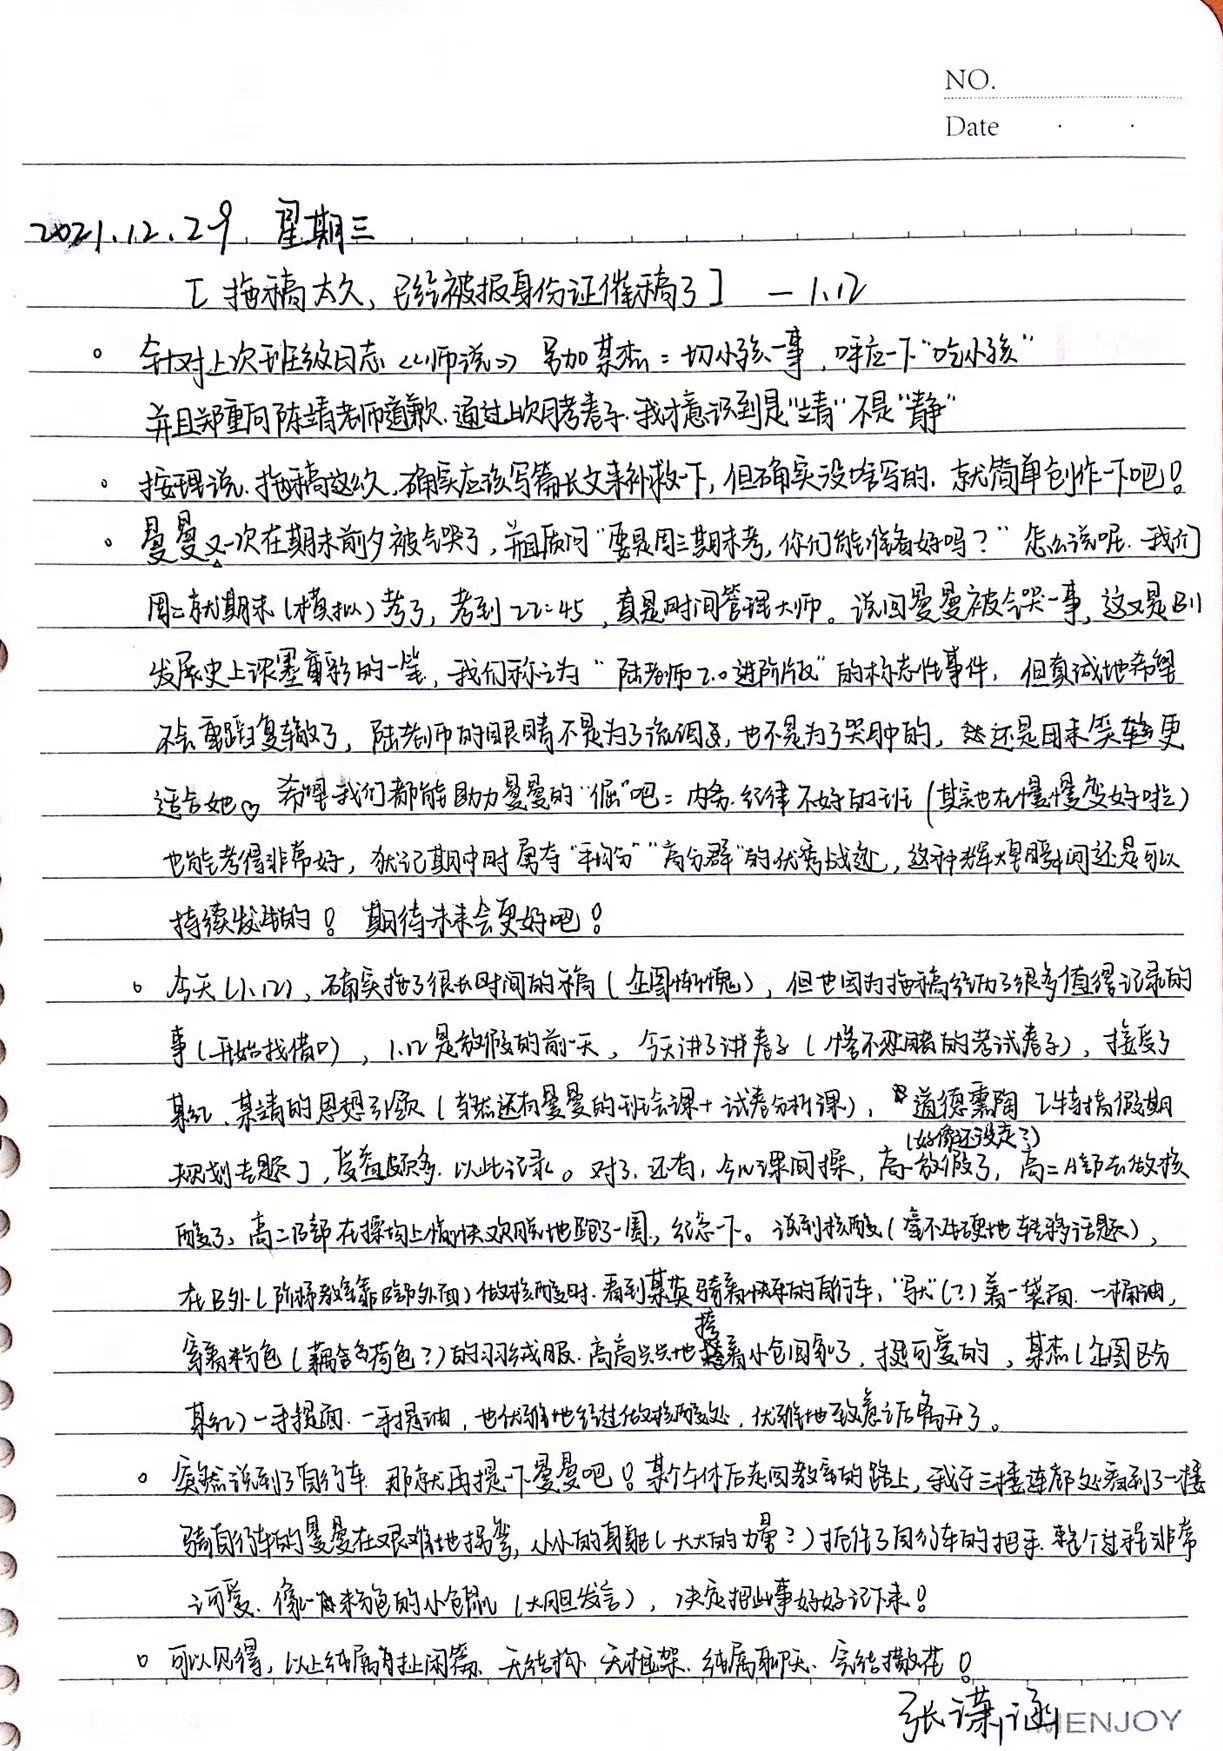 NO.
Date
2021.12.29. 星期三
[拖稿太久,已经被报身份证催稿了] — 1.12
。针对上次班级日志《师说》 另加某杰:一切小孩一事,呼应一下"吃小孩"
并且郑重向陈靖老师道歉.通过上次月考卷子.我才意识到是"靖"不是"静"
。按理说.拖稿这么久.确实应该写篇长文来补救一下,但确实没啥写的.就简单创作一下吧!
。曼曼又一次在期末前夕被气哭了,并且质问"要是周三期末考,你们能准备好吗?" 怎么说呢.我们
周二就期末(模拟)考了,考到22:45,真是时间管理大师。说回曼曼被气哭一事,这又是B11
发展史上浓墨重彩的一笔,我们称之为"陆老师2.0进阶版"的标志性事件, 但真诚地希望
不会重蹈覆辙了, 陆老师的眼睛不是为了流泪,也不是为了哭肿的, 还是用来笑更
适合她♡ 希望我们都能助力曼曼的"倔"吧:内务.纪律不好的班(其实也在慢慢变好啦)
也能考得非常好,犹记期中时勇夺"平均分""高分群"的优秀战迹,这种辉煌瞬间还是可以
持续发生的! 期待未来会更好吧!
。今天(1.12), 确实拖了很长时间的稿(企图惭愧),但也因为拖稿经历了很多值得记录的
事(开始找借口), 1.12是放假的前一天, 今天讲了讲卷子(惨不忍睹的考试卷子), 接受了
某红、某靖的思想引领(当然还有曼曼的班会课+试卷分析课), 道德熏陶[特指假期
(好像还没走?)
规划专题],受益颇多.以此记录。对了.还有,今儿课间操,高一放假了,高二A部去做核
酸了,高二B部在操场上愉快欢脱地跑了一圈,纪念一下。说到核酸(毫不生硬地转移话题),
在B外(阶梯教室靠B部外面)做核酸时.看到某英骑着快乐的自行车,"驮"(?)着一袋面.一桶油,
穿着粉色(藕色荷色?)的羽绒服.高高兴兴地挎着小包回家了,挺可爱的,某杰(企图区分
某红)一手提面.一手提油,也优雅地经过做核酸处,优雅地致意之后离开了。
。突然说到了自行车.那就再提一下曼曼吧!某个午休后走回教室的路上,我于三楼连廊处看到了一楼
骑自行车的曼曼在艰难地拐弯,小小的身躯(大大的力量?)抓住了自行车的把手.整个过程非常
可爱.像一只粉色的小仓鼠(大胆发言),决定把此事好好记下来!
。可以见得,以上纯属瞎扯闲篇.无结构.无框架.纯属聊天.完结撒花!
张潇涵
MENJOY